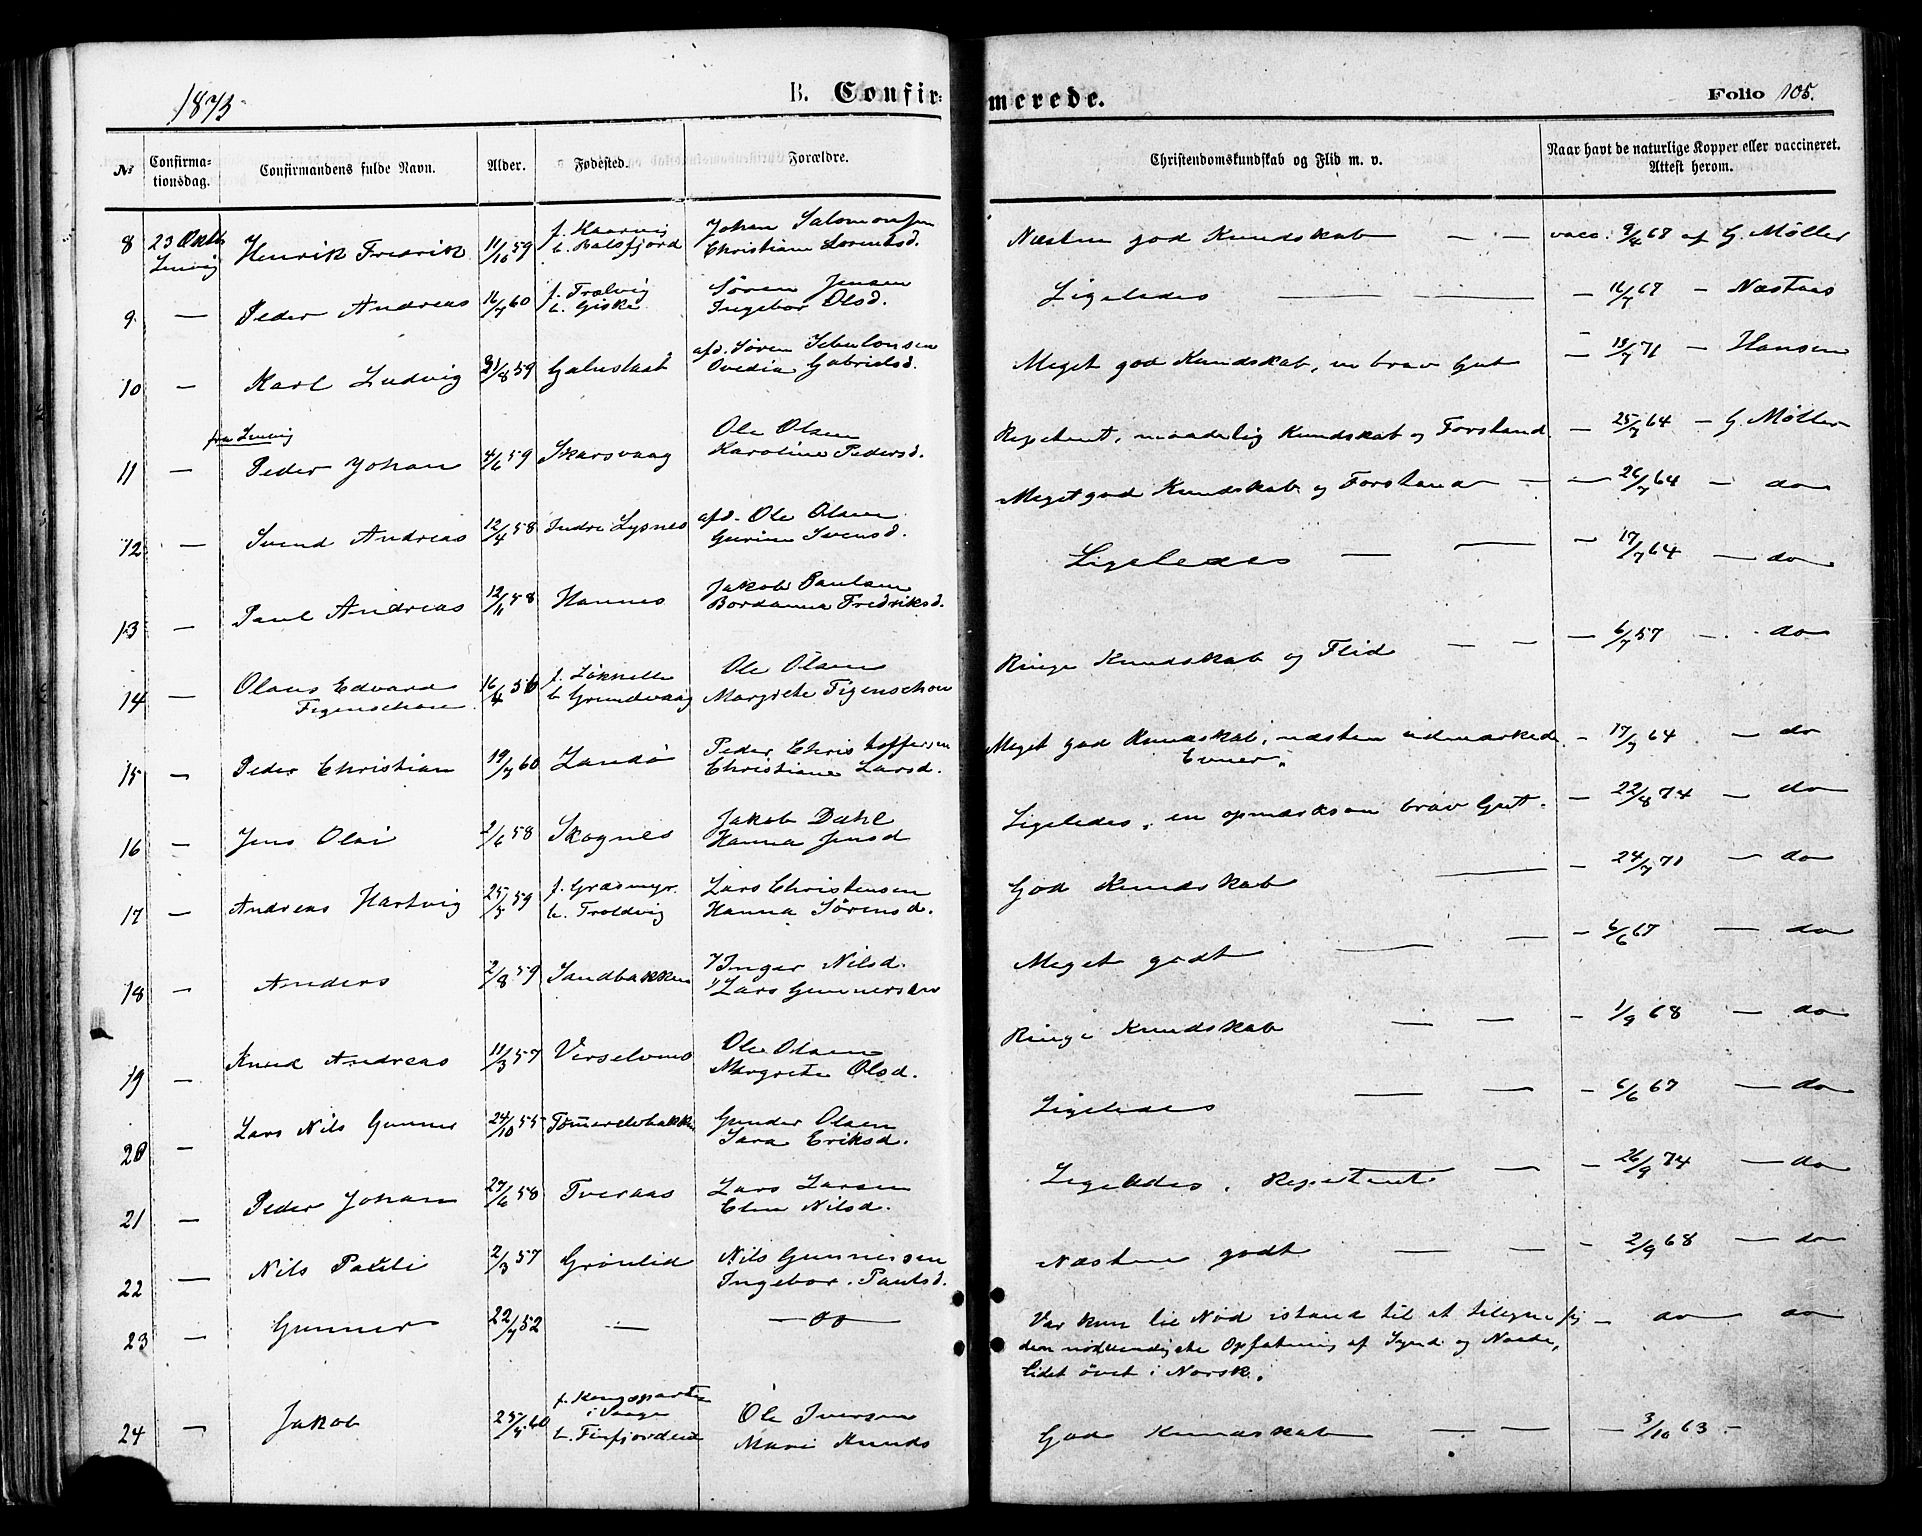 1875
B. Confir-
merede.
Folio 105.
No
Confirma-
tionsdag.
Confirmandens fulde Navn.
Alder.
Fødested.
Forældre.
Christendomskundskab og Flid m. v.
Naar havt de naturlige Kopper eller vaccineret.
Attest herom.
8 23 Oktb Henrik Fredrik 11/10 59 f. Haarvig Johan Salomonsen Næsten god Kundskab — — vacc. 9/4 68 af G. Møller
Lenvig b. Balsfjord Christiane Lorentsd.
9 — Peder Andreas 16/7 60 f. Trælvig Søren Jensen Ligeledes — — — 16/7 67 — Næstaas
b. Giske Ingebor Olsd.
10 — Karl Ludvig 31/8 59 afd. Søren Sebulonsen Meget god Kundskab, en brav Gut — 19/7 71 — Hansen
Ovedia Gabrielsd.
fra Lenvig
11 — Peder Johan 4/6 59 Skarsvaag Ole Olsen Repetent, maadelig Kundskab og Forstand — 25/7 64 — G. Møller
Karoline Pedersd.
12 — Svend Andreas 12/4 58 Indre Lysnes afd. Ole Olsen Meget god Kundskab og Forstand — — 26/7 64 — do
Svensd.
13 — Paul Andreas 12/11 58 Hannes Jakob Paulsen Ligeledes — — — 17/7 64 — do
Bordanna Fredriksd.
14 — Olaus Edvard 16/4 56 Ole Olsen Ringe Kundskab og Flid — — — 6/7 57 — do
Figenschou b. Grundvaag Margrete Figenschou
15 — Peder Christian 19/7 60 Sandø Peder Christoffersen Meget god Kundskab, næsten udmærkede — 17/7 64 — do
Christiane Larsd. Evner.
16 — Jens Olai 2/6 58 Skognes Jakob Dahl Ligeledes, en opmærksom brav Gut. — 22/8 74 — do
Hanna Jensd
17 — Andreas Hartvig 25/5 59 f. Græsmyr. Lars Christensen God Kundskab — — 24/7 71 — do
b. Troldvig Hanna Sørensd.
18 — Anders 2/8 59 Sandbakken Inger Nilsd. Meget godt — — — 6/6 67 — do
Lars Gunnersen
19 — Knud Andreas 11/3 57 Ole Olsen Ringe Kundskab — — — 1/9 68 — do
Margrete Olsd.
20 — Lars Nils Gunner 24/10 55 Gunder Olsen Ligeledes — — — 6/6 67 — do
Sara Eriksd.
21 — Peder Johan 27/6 58 Tveraas Lars Larsen Ligeledes. Repetent — — 26/9 74 — do
Elen Nilsd.
22 — Nils Pauli 2/3 57 Grønlid Nils Gunnersen Næsten godt — — — 2/9 68 — do
Ingebor. Paulsd.
23 — Gunner 22/7 52 — — do — Var kun til Nød istand til at tilegne sig — do — do
den nødvendigste Opfatning af Synd og Naade,
lidet øvet i Norsk.
24 — Jakob 25/5 60 Ole Iversen God Kundskab — — — 3/10 63 —
b. Finfjordeid Mari Knuds